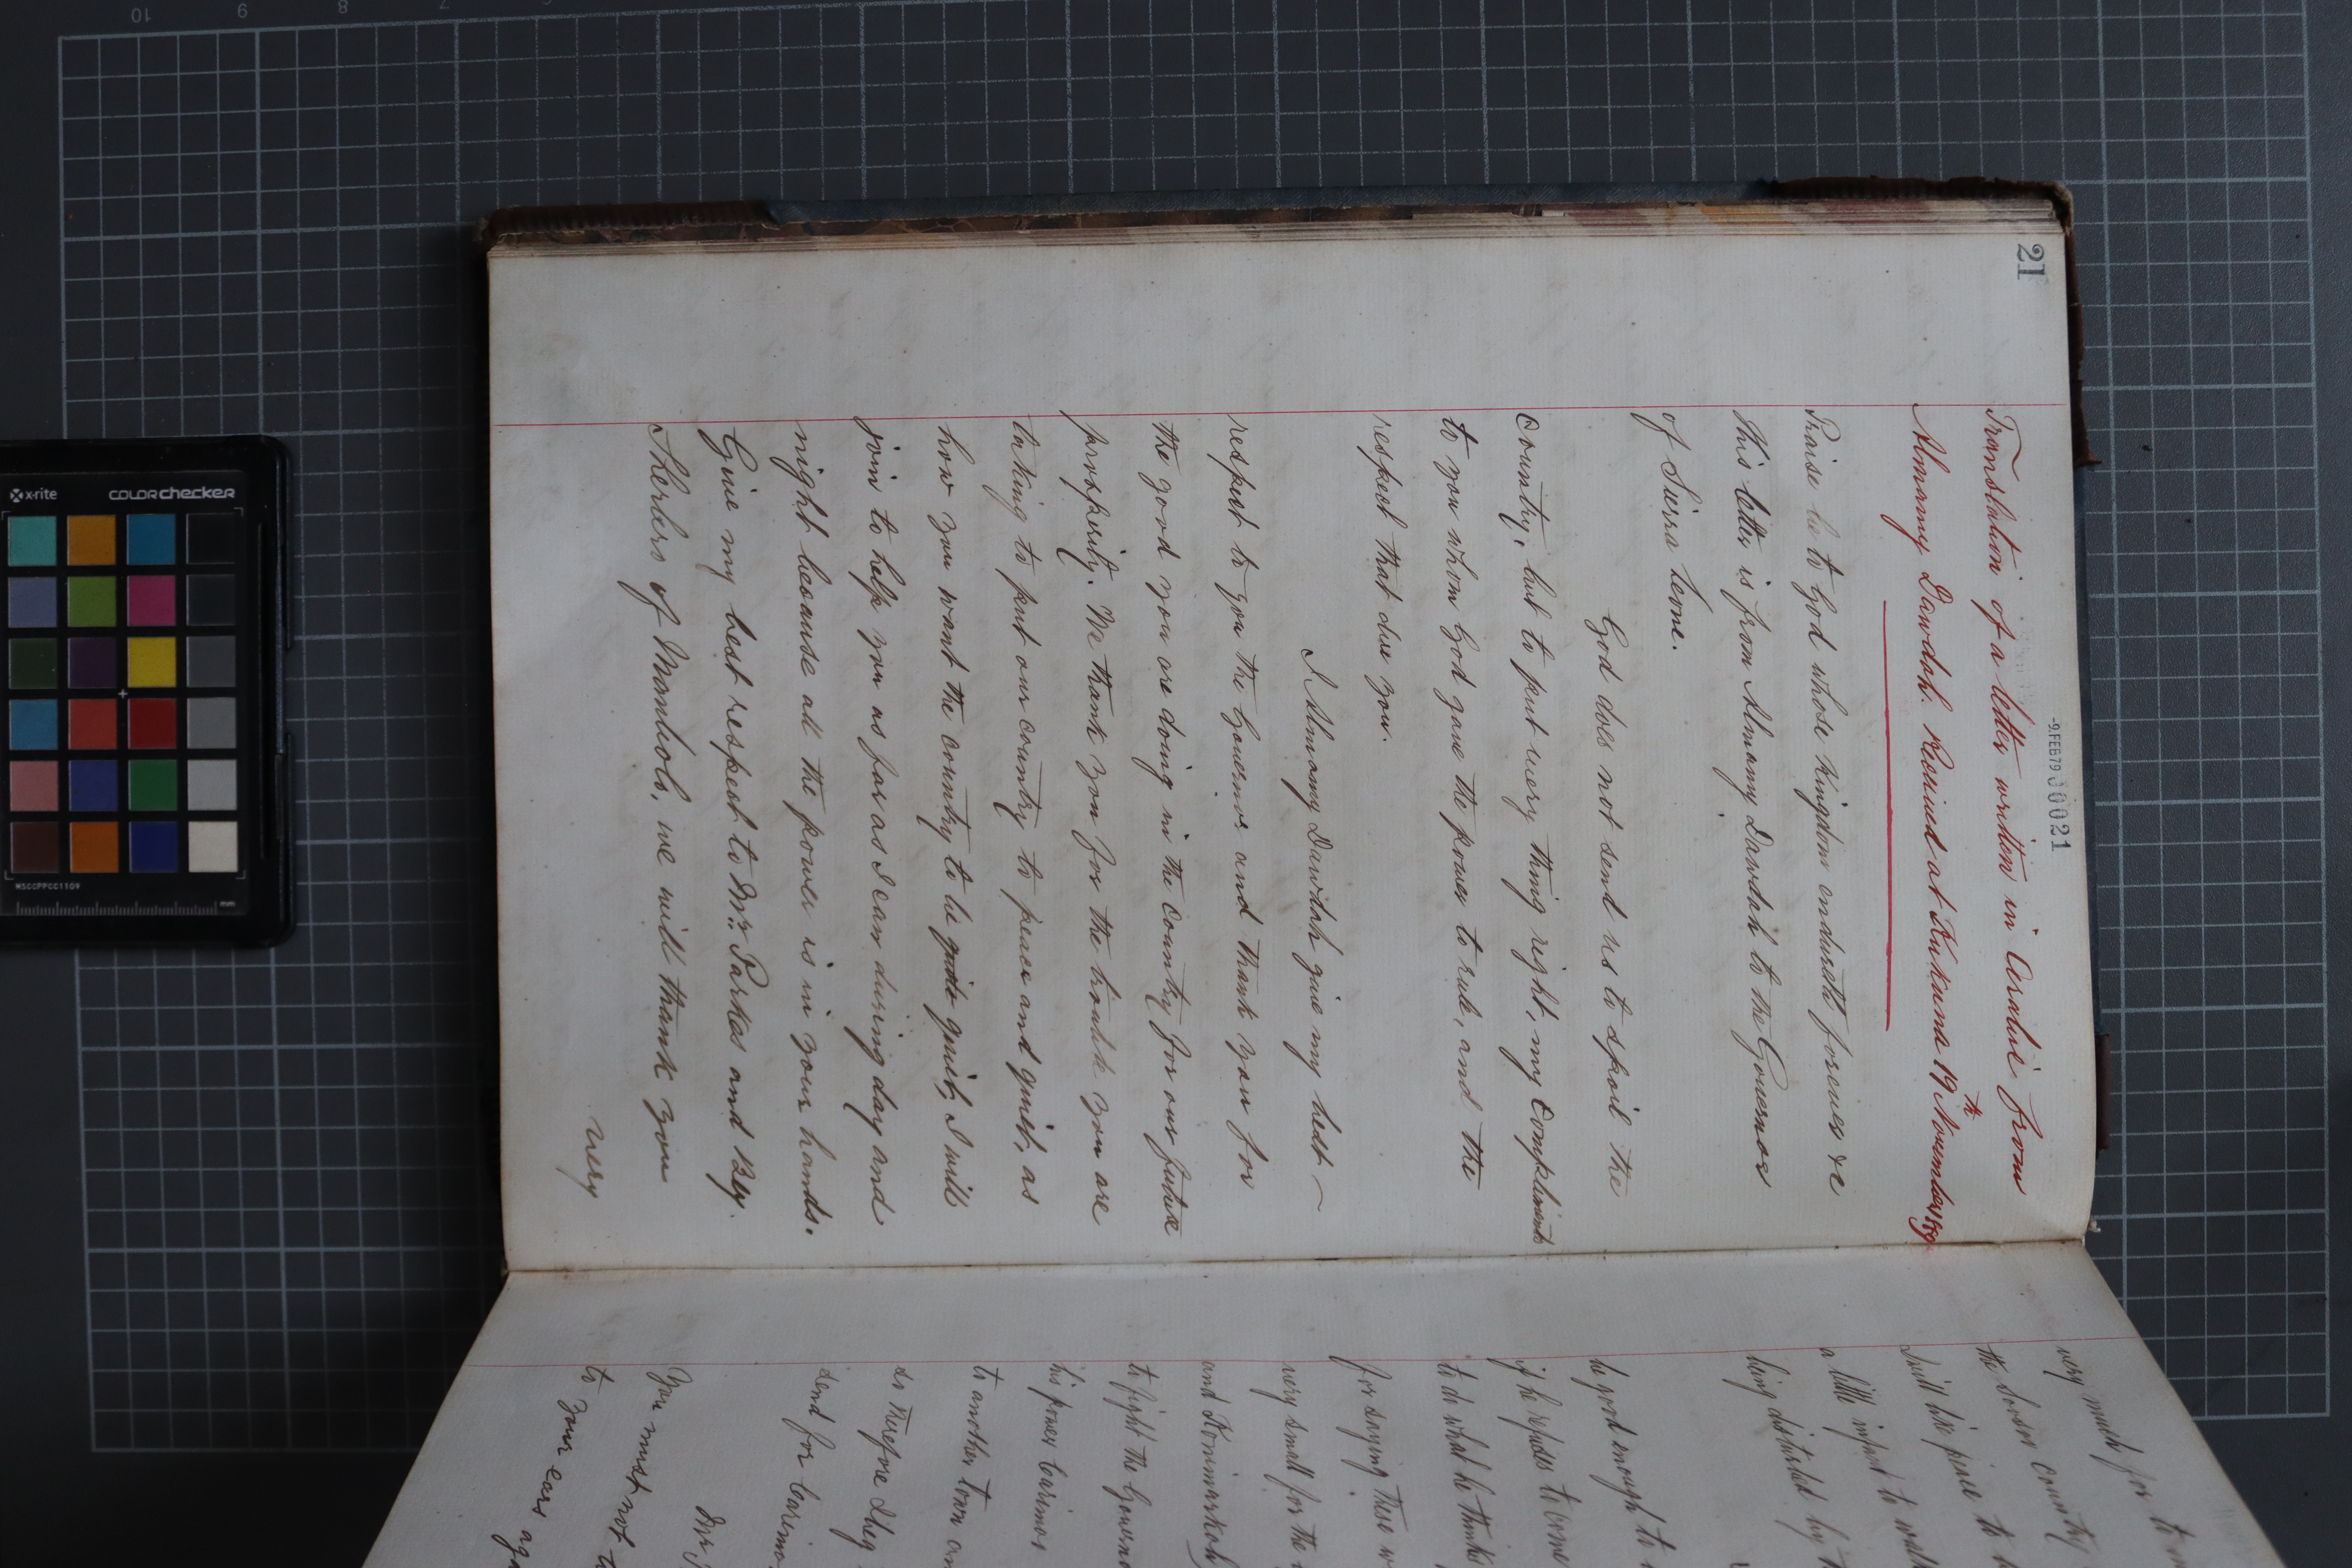 21
-9.FEB79 00021
Translation of a letter written in Arabic from
Almamy Dawdah. Received at Kukuna 19th November
Praise be to God whose kingdom endureth forever &c
This letter is from Almamy Dawdah to the Governor
of Sierra Leone.
God does not send us to spoil the
Country, but to put every thing right, my Compliments
to you whom God gave the power to rule, and the
respect that due you.
I Almamy Dawdah give my best
respect to you the Governor and thank you for
the good you are doing in the Country for our future
prosperity. We thank you for the trouble you are
taking to put our country to peace and quiet, as
how you want the country to be quite quiet, I will
join to help you as far as I can during day and
night because all the power is in your hands.
Give my best respect to Mr. Parkes and Bey.
Sherbro of Mambolo, we will thank you
very
very much for
the Sosor country
I will like peace to
a little
being disturbed by
be good enough to
if he refuses to come
to do what he thinks
for saying these
very small for the
and
to fight the Governor
his power Carimoo
to another town
so therefore
send for Carimo
You must not
to your ears
x-rite
colorchecker
MSCCPPCC1109
mm
10
9
8
7
6